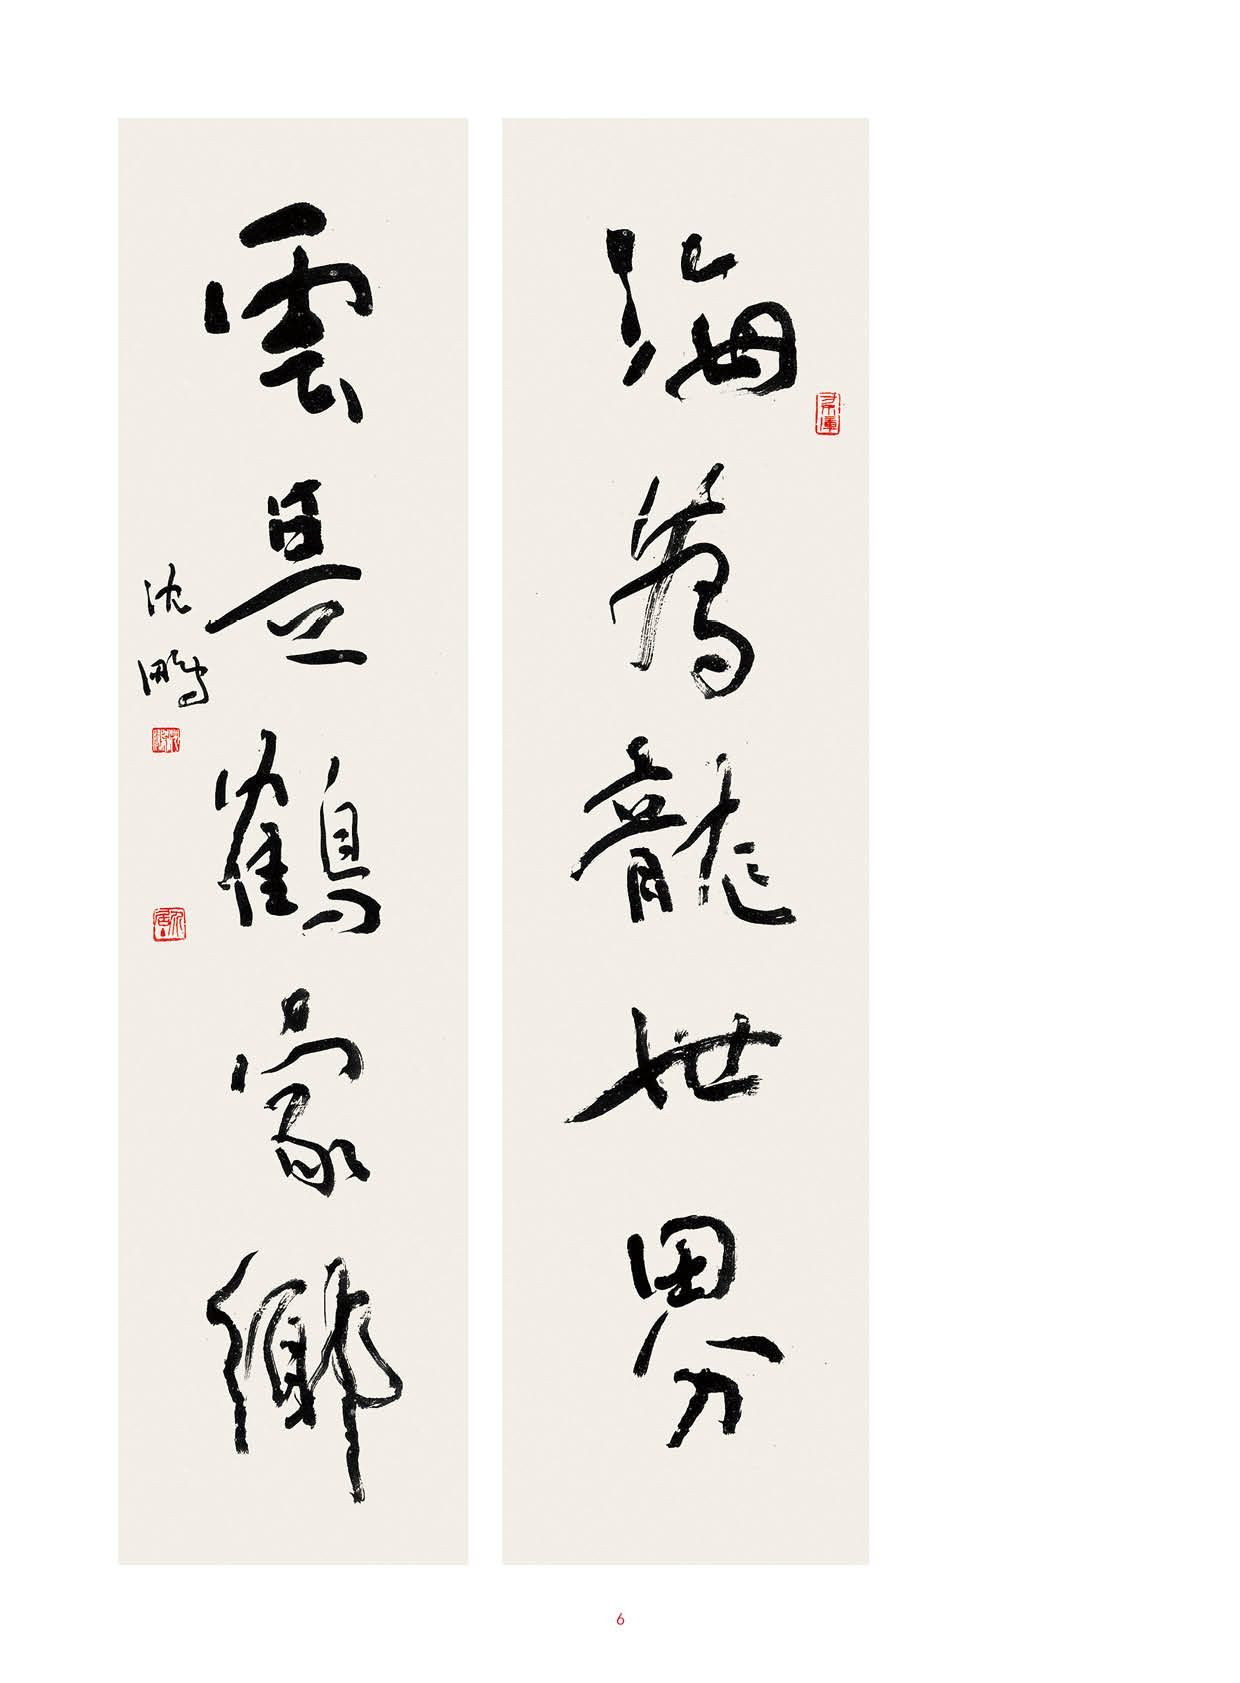 海爲龍世界
雲是鶴家鄉
沈鵬
6